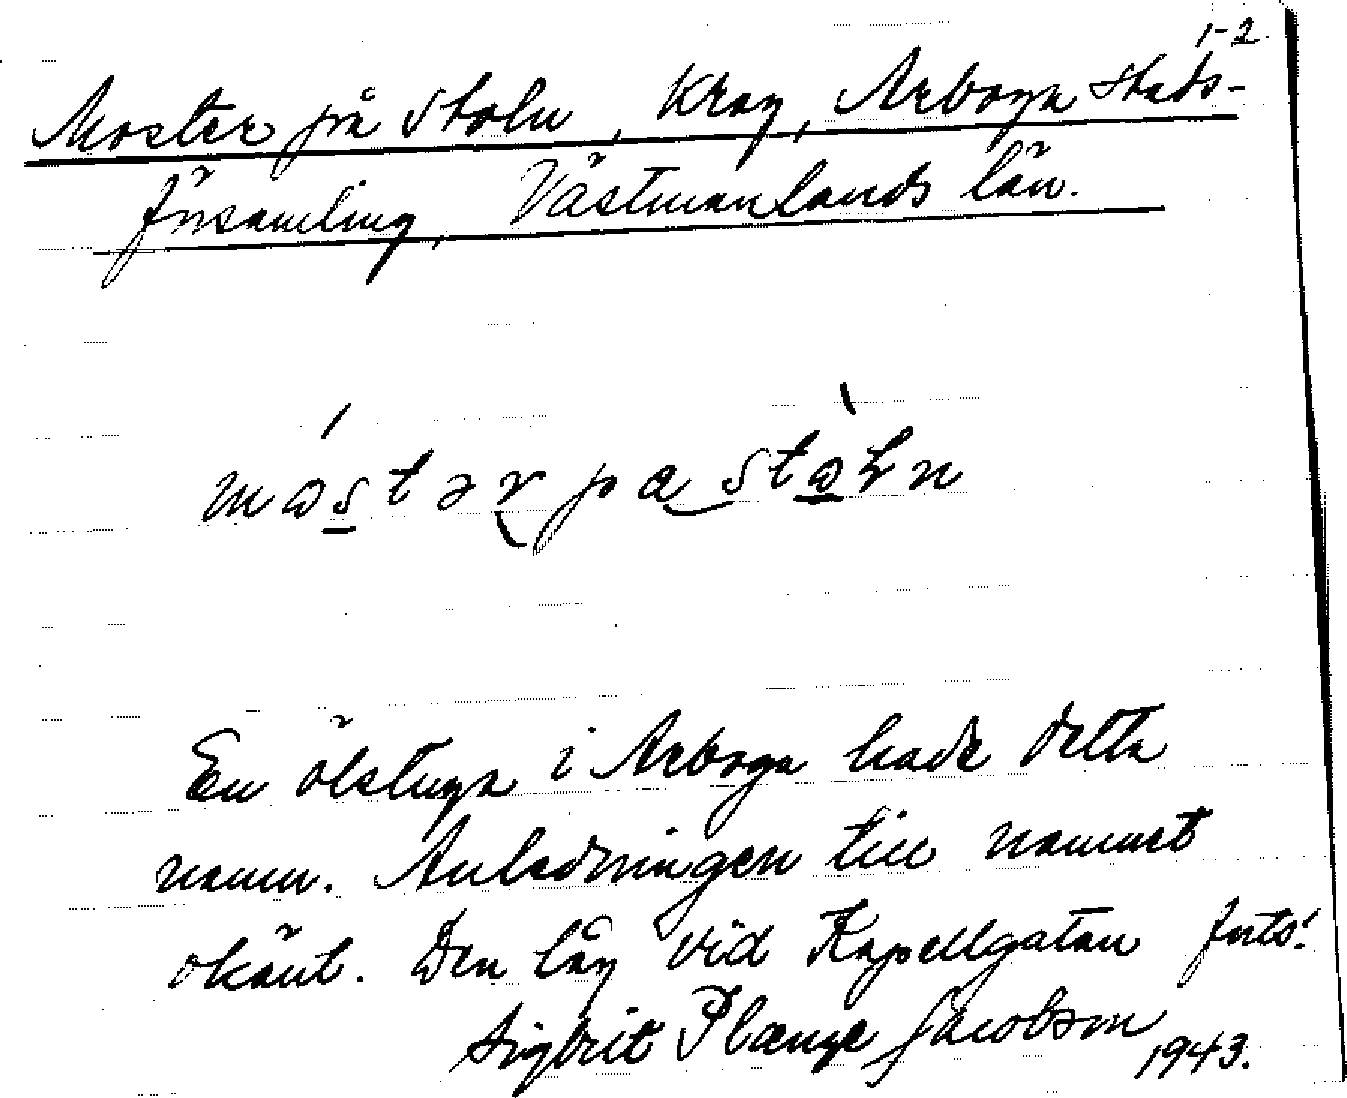 1-2
Moster på Stoln, Krog, Arboga stads-
församling, Västmanlands län.
En ölstuga i Arboga hade detta
namn. Anledningen till namnet
okänt. Den låg vid Kapellgatan forts!
Sigbrit Plænge Jacobson 1943.